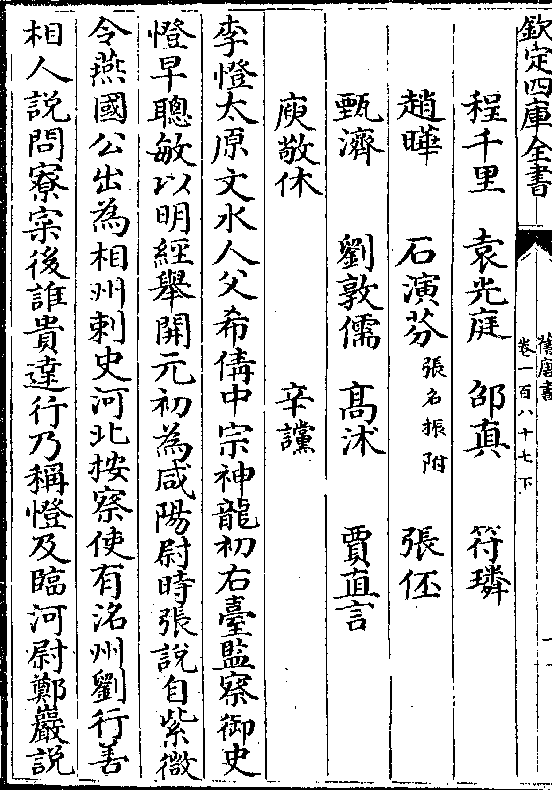 欽定四庫全書
舊唐書
卷一百八十七下
程千里 袁光庭 邵真 符璘
趙曄 石演芬 張名振附 張伾
甄濟 劉敦儒 髙沐 賈直言
庾敬休 辛讜
李憕太原文水人父希倩中宗神龍初右臺監察御史
憕早聰敏以明經舉開元初為咸陽尉時張說自紫微
令燕國公出為相州刺史河北按察使有洺州劉行善
相人說問寮寀後誰貴達行乃稱憕及臨河尉鄭巖說